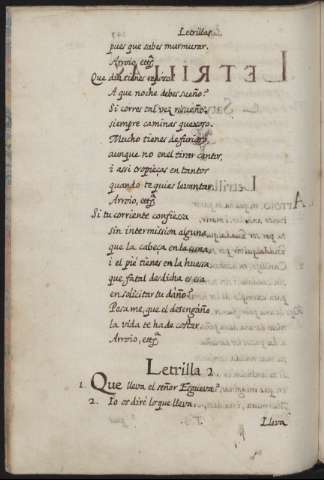 Letrillas
pues que sabes murmurar.
Arroio, etc.
Que dia tienes reposo?
A que noche debes sueño?
Si corres tal vez risueño,
siempre caminas quexoso.
Mucho tienes de furioso,
aunque no en el tirar cantos,
i assi tropiecas en tantos
quando te quies levantar.
Arroio, etc.
Si tu corriente confiessa
sin intermission alguna,
que la cabeça en la cuna,
i el pie tienes en la huesa.
que fatal desdicha es esa
en solicitar tu daño?
Pesame, que el desengaño
la vida te ha de costar.
Arroio, etc.
Letrilla 2
1. Que lleva el señor Esgueva?
2. Io os diré lo que lleva.
Lleva